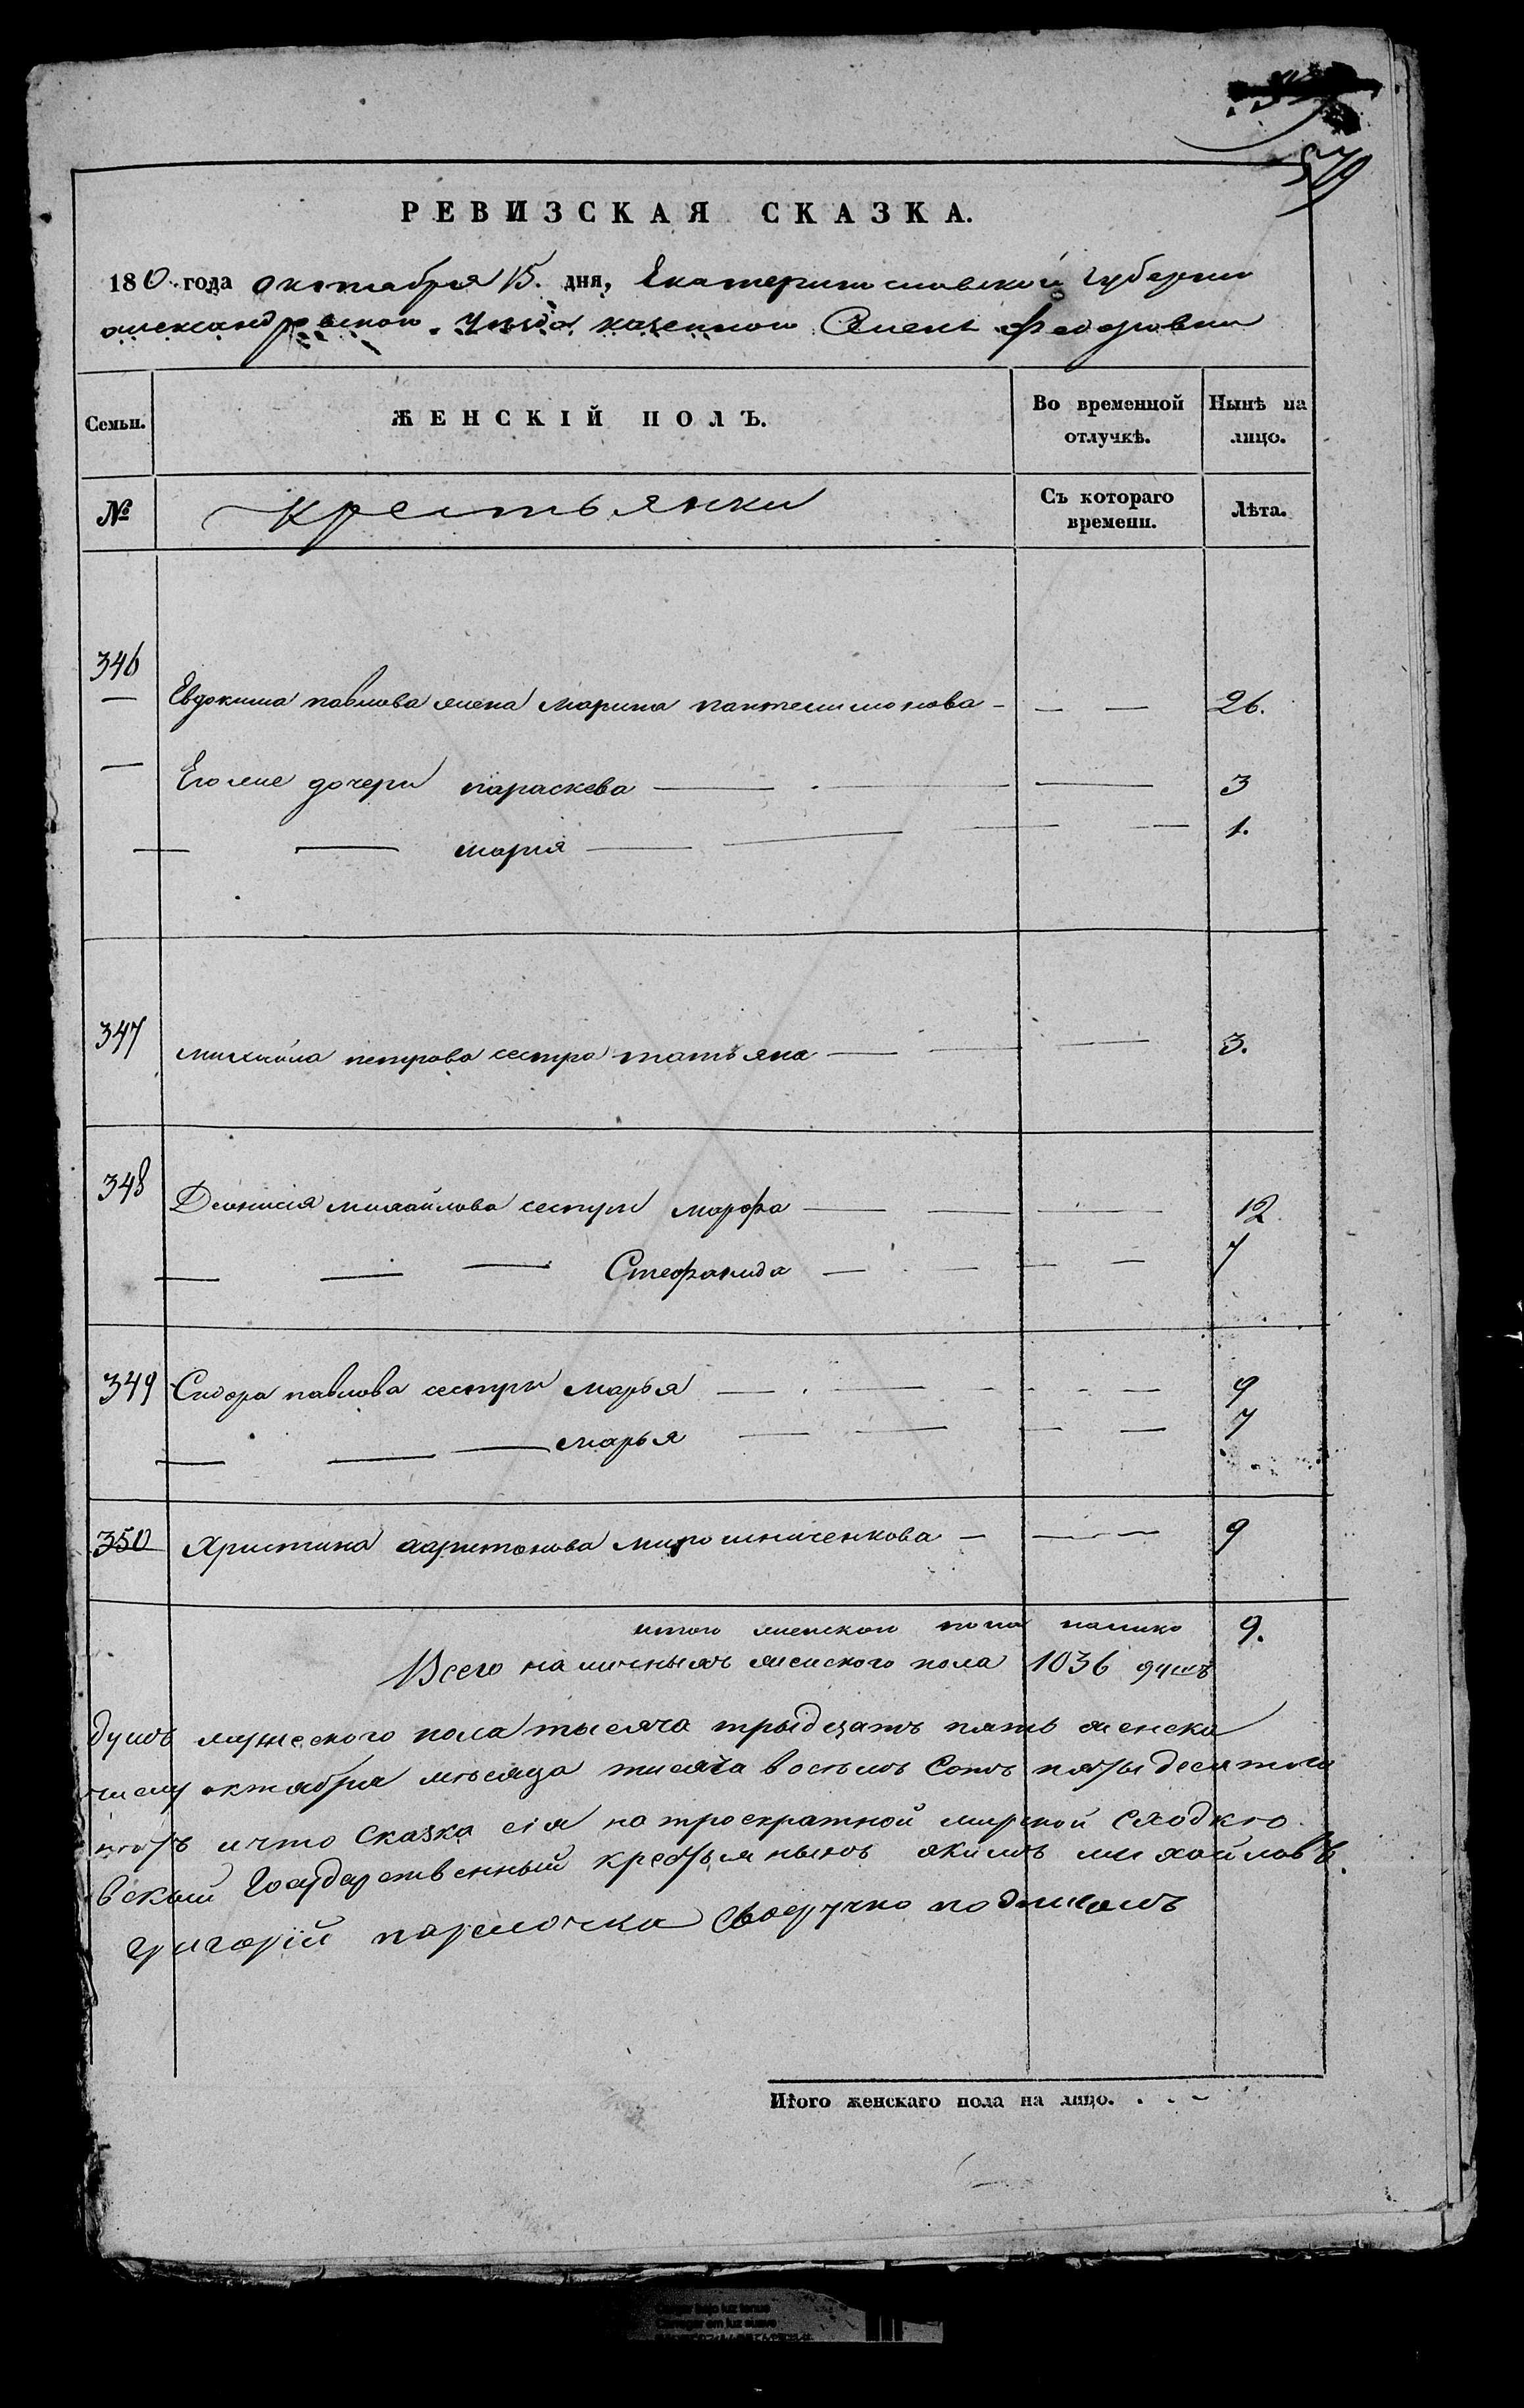 579
РЕВИЗСКАЯ СКАЗКА.
180 года октября 15. дня, Екатеринославской губерни
александровского уезда казенной Слобе Федоровки
Семьи. ЖЕНСКІЙ ПОЛЪ. Во временной отлучкѣ. Нынѣ на лицо.
№ крестьянки Съ котораго времени. Лѣта.
346 Евдокима павлова жена марина пантелимонова - — — 26.
— Его же дочери параскева — — — 3
— — мария — — — — 1.
347 михайла петрова сестра татьяна — — — 3.
348 Деонисія михайлова сестры марфа — — — 12
— — — Стефанида — — — — 7
349 Сидора павлова сестры марья — — — — 9
— — — марья — — — — 7
350 Христина харитонова мирошниченкова — — — 9
итого женского пола налико 9.
Всего наличныхъ женского пола 1036 душъ
душъ мужеского пола тысяча трыдцать пять женска
числу октября мѣсяца тисяча восемъ сотъ пятьдесятого
и что сказка сія на троекратной мирской сходкѣ
вский Государственный крестьянынъ якимъ михайловъ.
григорій своеручно подписалъ
Итого женскаго пола на лицо. . . -